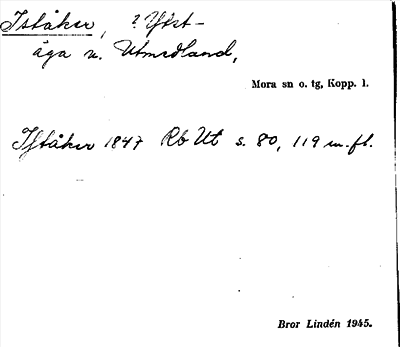 Iståker, ? Ytöst-
äga u. Utmedland,
Mora sn o. tg, Kopp. l.
Iståker 1847 Rb Ut s. 80, 119 m.fl.
Bror Lindén 1945.